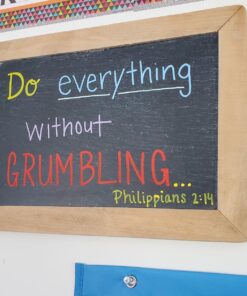 Do everything
without
GRUMBLING...
Philippians 2:14